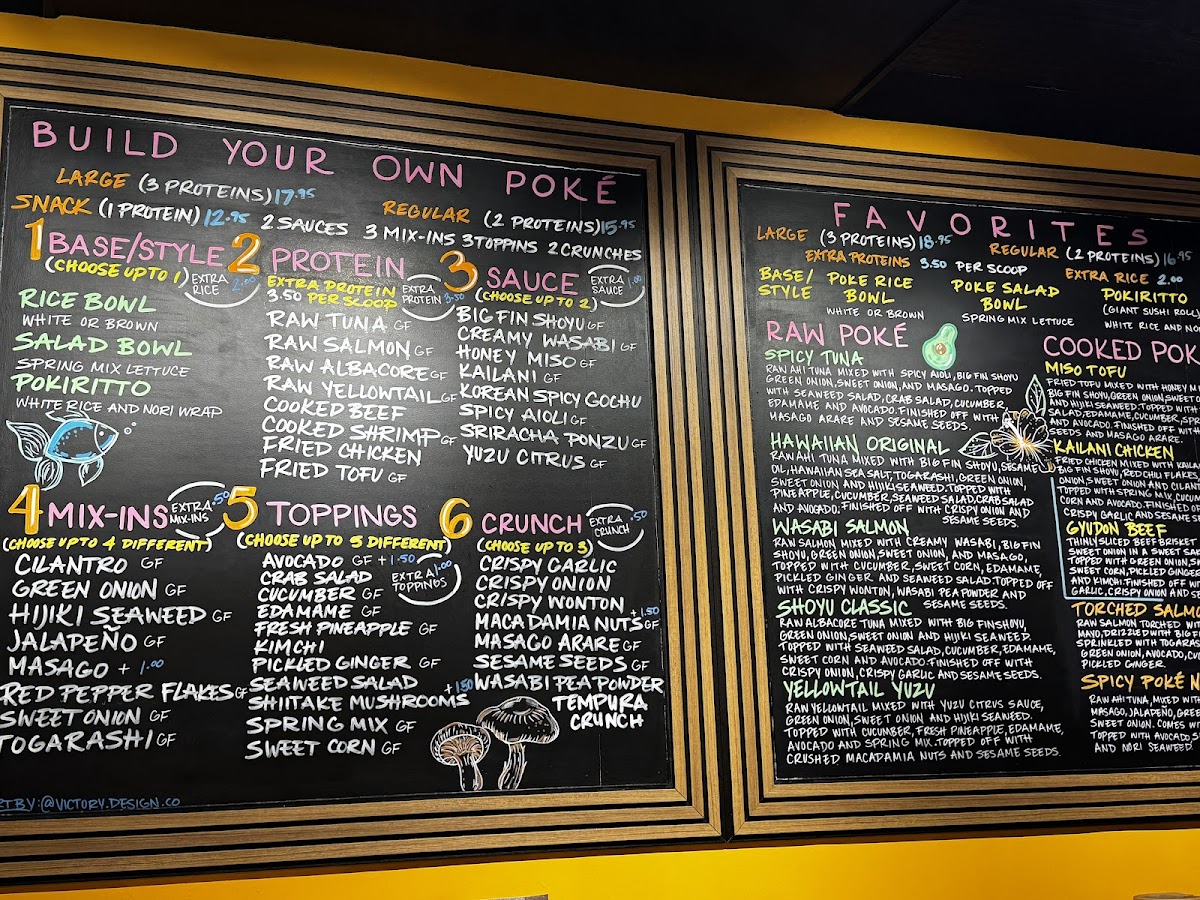 BUILD YOUR OWN POKÉ
LARGE (3 PROTEINS) 17.95
SNACK (1 PROTEIN) 12.95
REGULAR (2 PROTEINS) 15.95
2 SAUCES 3 MIX-INS 3 TOPPINS 2 CRUNCHES
1 BASE/STYLE
(CHOOSE UP TO 1)
EXTRA RICE 2.00
RICE BOWL
WHITE OR BROWN
SALAD BOWL
SPRING MIX LETTUCE
POKIRITTO
WHITE RICE AND NORI WRAP
2 PROTEIN
EXTRA PROTEIN
3.50 PER SCOOP
EXTRA PROTEIN 3.50
RAW TUNA GF
RAW SALMON GF
RAW ALBACORE GF
RAW YELLOWTAIL GF
COOKED BEEF
COOKED SHRIMP GF
FRIED CHICKEN
FRIED TOFU GF
3 SAUCE
(CHOOSE UP TO 2)
EXTRA SAUCE 1.00
BIG FIN SHOYU GF
CREAMY WASABI GF
HONEY MISO GF
KAILANI GF
KOREAN SPICY GOCHU
SPICY AIOLI GF
SRIRACHA PONZU GF
YUZU CITRUS GF
4 MIX-INS
(CHOOSE UP TO 4 DIFFERENT)
EXTRA MIX-INS .50
CILANTRO GF
GREEN ONION GF
HIJIKI SEAWEED GF
JALAPEÑO GF
MASAGO + 1.00
RED PEPPER FLAKES GF
SWEET ONION GF
TOGARASHI GF
5 TOPPINGS
(CHOOSE UP TO 5 DIFFERENT)
AVOCADO GF + 1.50
CRAB SALAD
CUCUMBER GF
EXTRA TOPPINGS 1.00
EDAMAME GF
FRESH PINEAPPLE GF
KIMCHI
PICKLED GINGER GF
SEAWEED SALAD
SHIITAKE MUSHROOMS +1.50
SPRING MIX GF
SWEET CORN GF
6 CRUNCH
(CHOOSE UP TO 3)
EXTRA CRUNCH .50
CRISPY GARLIC
CRISPY ONION
CRISPY WONTON
MACADAMIA NUTS GF +1.50
MASAGO ARARE GF
SESAME SEEDS GF
WASABI PEA POWDER
TEMPURA
CRUNCH
ART BY: @VICTORY.DESIGN.CO
FAVORITES
LARGE (3 PROTEINS) 18.95
REGULAR (2 PROTEINS) 16.95
EXTRA PROTEINS 3.50 PER SCOOP
EXTRA RICE 2.00
BASE/
STYLE
POKE RICE
BOWL
WHITE OR BROWN
POKE SALAD
BOWL
SPRING MIX LETTUCE
POKIRITTO
(GIANT SUSHI ROLL)
WHITE RICE AND NO
RAW POKÉ
SPICY TUNA
RAW AHI TUNA MIXED WITH SPICY AIOLI, BIG FIN SHOYU
GREEN ONION, SWEET ONION, AND MASAGO. TOPPED
WITH SEAWEED SALAD, CRAB SALAD, CUCUMBER,
EDAMAME AND AVOCADO. FINISHED OFF WITH
MASAGO ARARE AND SESAME SEEDS.
HAWAIIAN ORIGINAL
RAW AHI TUNA MIXED WITH BIG FIN SHOYU, SESAME
OIL, HAWAIIAN SEA SALT, TOGARASHI, GREEN ONION,
SWEET ONION AND HIJIKI SEAWEED. TOPPED WITH
PINEAPPLE, CUCUMBER, SEAWEED SALAD, CRAB SALAD
AND AVOCADO. FINISHED OFF WITH CRISPY ONION AND
SESAME SEEDS.
WASABI SALMON
RAW SALMON MIXED WITH CREAMY WASABI, BIG FIN
SHOYU, GREEN ONION, SWEET ONION, AND MASAGO.
TOPPED WITH CUCUMBER, SWEET CORN, EDAMAME,
PICKLED GINGER AND SEAWEED SALAD. TOPPED OFF
WITH CRISPY WONTON, WASABI PEA POWDER AND
SESAME SEEDS.
SHOYU CLASSIC
RAW ALBACORE TUNA MIXED WITH BIG FIN SHOYU,
GREEN ONION, SWEET ONION AND HIJIKI SEAWEED.
TOPPED WITH SEAWEED SALAD, CUCUMBER, EDAMAME,
SWEET CORN AND AVOCADO. FINISHED OFF WITH
CRISPY ONION, CRISPY GARLIC AND SESAME SEEDS.
YELLOWTAIL YUZU
RAW YELLOWTAIL MIXED WITH YUZU CITRUS SAUCE,
GREEN ONION, SWEET ONION AND HIJIKI SEAWEED.
TOPPED WITH CUCUMBER, FRESH PINEAPPLE, EDAMAME,
AVOCADO AND SPRING MIX. TOPPED OFF WITH
CRUSHED MACADAMIA NUTS AND SESAME SEEDS.
COOKED POK
MISO TOFU
FRIED TOFU MIXED WITH HONEY M
BIG FIN SHOYU, GREEN ONION, SWEET O
AND HIJIKI SEAWEED. TOPPED WITH
SALAD, EDAMAME, CUCUMBER, SPR
AND AVOCADO. FINISHED OFF WITH
SEEDS AND MASAGO ARARE.
KAILANI CHICKEN
FRIED CHICKEN MIXED WITH KAILA
BIG FIN SHOYU, RED CHILI FLAKES,
ONION, SWEET ONION AND CILANT
TOPPED WITH SPRING MIX, CUCUM
CORN AND AVOCADO. FINISHED OF
CRISPY GARLIC AND SESAME SE
GYUDON BEEF
THINLY SLICED BEEF BRISKET
SWEET ONION IN A SWEET SA
TOPPED WITH GREEN ONION, SW
SWEET CORN, PICKLED GINGER
AND KIMCHI. FINISHED OFF WIT
GARLIC, CRISPY ONION AND SE
TORCHED SALMO
RAW SALMON TORCHED WIT
MAYO, DRIZZLED WITH BIG F
SPRINKLED WITH TOGARAS
GREEN ONION, AVOCADO, CU
PICKLED GINGER
SPICY POKÉ N
RAW AHI TUNA, MIXED WITH
MASAGO, JALAPEÑO, GREE
SWEET ONION. COMES WI
TOPPED WITH AVOCADO, S
AND NORI SEAWEED.